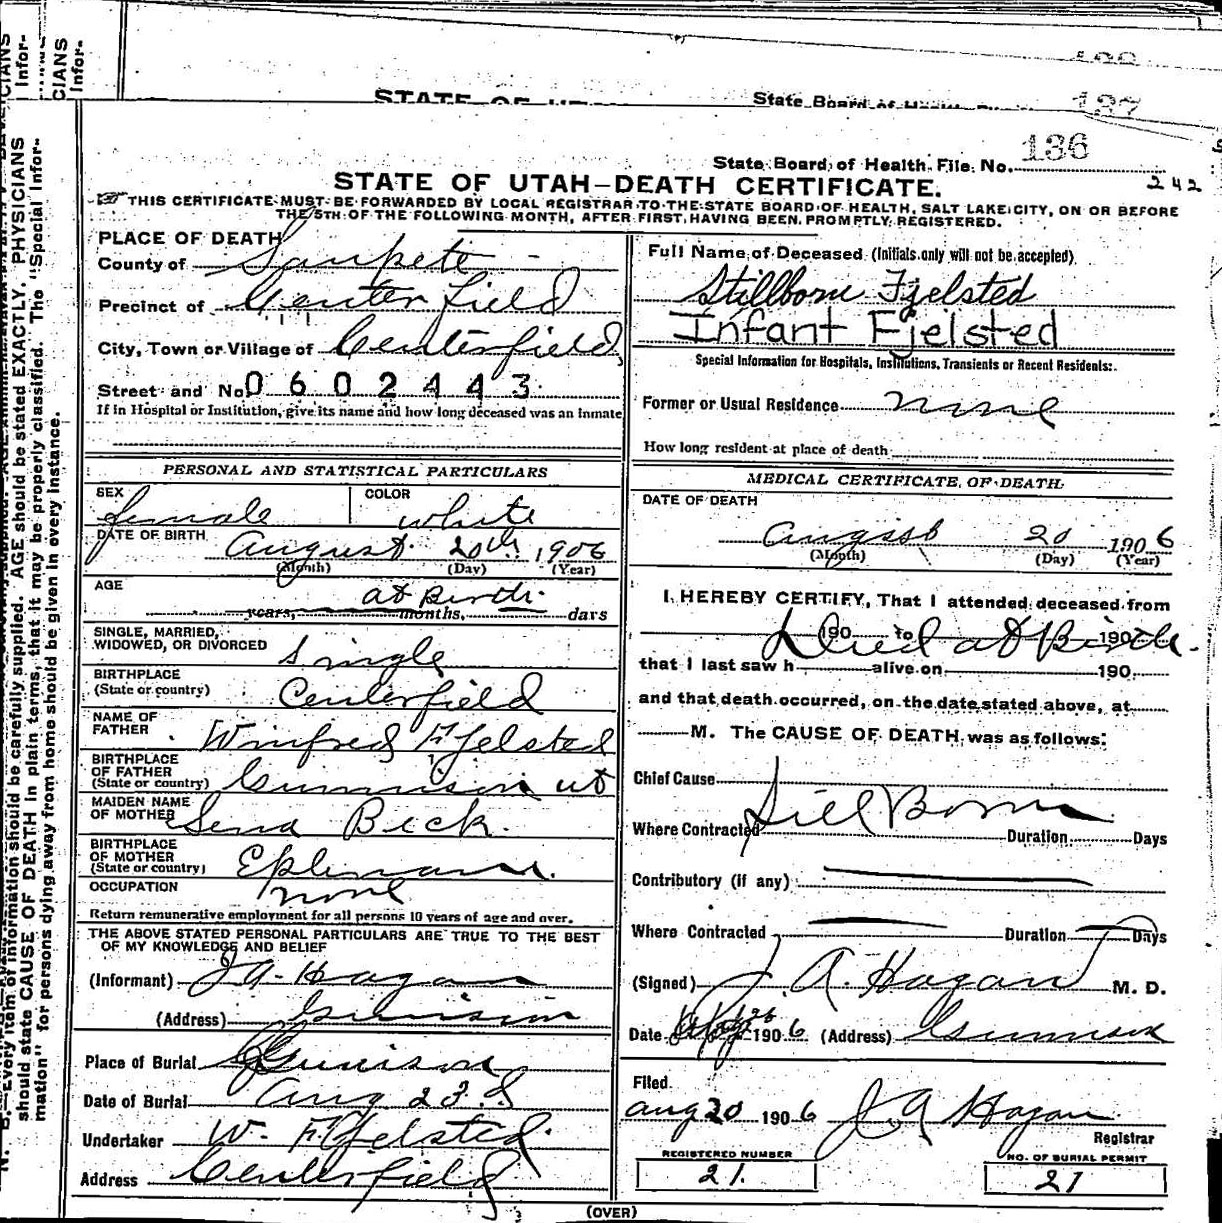 137
STATE OF
State Board of Health
136
State Board of Health File No.
242
STATE OF UTAH—DEATH CERTIFICATE.
THIS CERTIFICATE MUST BE FORWARDED BY LOCAL REGISTRAR TO THE STATE BOARD OF HEALTH, SALT LAKE CITY, ON OR BEFORE
THE 5TH OF THE FOLLOWING MONTH, AFTER FIRST HAVING BEEN PROMPTLY REGISTERED.
PLACE OF DEATH
County of Sanpete
Precinct of Centerfield
City, Town or Village of Centerfield
Street and No. 0602443
If in Hospital or Institution, give its name and how long deceased was an inmate
PERSONAL AND STATISTICAL PARTICULARS
SEX female COLOR white
DATE OF BIRTH August 20th 1906
(Month) (Day) (Year)
AGE at Birth
years, months, days
SINGLE, MARRIED,
WIDOWED, OR DIVORCED single
BIRTHPLACE
(State or country) Centerfield
NAME OF
FATHER Winfred Fjelsted
BIRTHPLACE
OF FATHER
(State or country) Gunnison ut
MAIDEN NAME
OF MOTHER Sena Beck.
BIRTHPLACE
OF MOTHER
(State or country)
OCCUPATION none
Return remunerative employment for all persons 10 years of age and over.
THE ABOVE STATED PERSONAL PARTICULARS ARE TRUE TO THE BEST
OF MY KNOWLEDGE AND BELIEF
(Informant) J A Hagan
(Address) Gunnison
Place of Burial Gunison
Date of Burial Aug 23
Undertaker W. Fjelsted
Address Centerfield
Full Name of Deceased (Initials only will not be accepted)
Stillborn Fjelsted
Infant Fjelsted
Special Information for Hospitals, Institutions, Transients or Recent Residents:
Former or Usual Residence none
How long resident at place of death
MEDICAL CERTIFICATE OF DEATH
DATE OF DEATH
20 1906
(Month) (Day) (Year)
I HEREBY CERTIFY, That I attended deceased from
190 to 190
Died at Birth.
that I last saw h alive on 190
and that death occurred, on the date stated above, at
M. The CAUSE OF DEATH was as follows:
Chief Cause
Still Born
Where Contracted Duration Days
Contributory (if any)
Where Contracted Duration Days
(Signed) J. A. Hagan M. D.
Date 26 1906 (Address) Gunnison
Filed
Aug 20 1906 J A Hagan
Registrar
REGISTERED NUMBER
21.
NO. OF BURIAL PERMIT
21
(OVER)
N. B. Every item of information should be carefully supplied. AGE should be stated EXACTLY. PHYSICIANS
should state CAUSE OF DEATH in plain terms, that it may be properly classified. The "Special Infor-
mation" for persons dying away from home should be given in every instance.